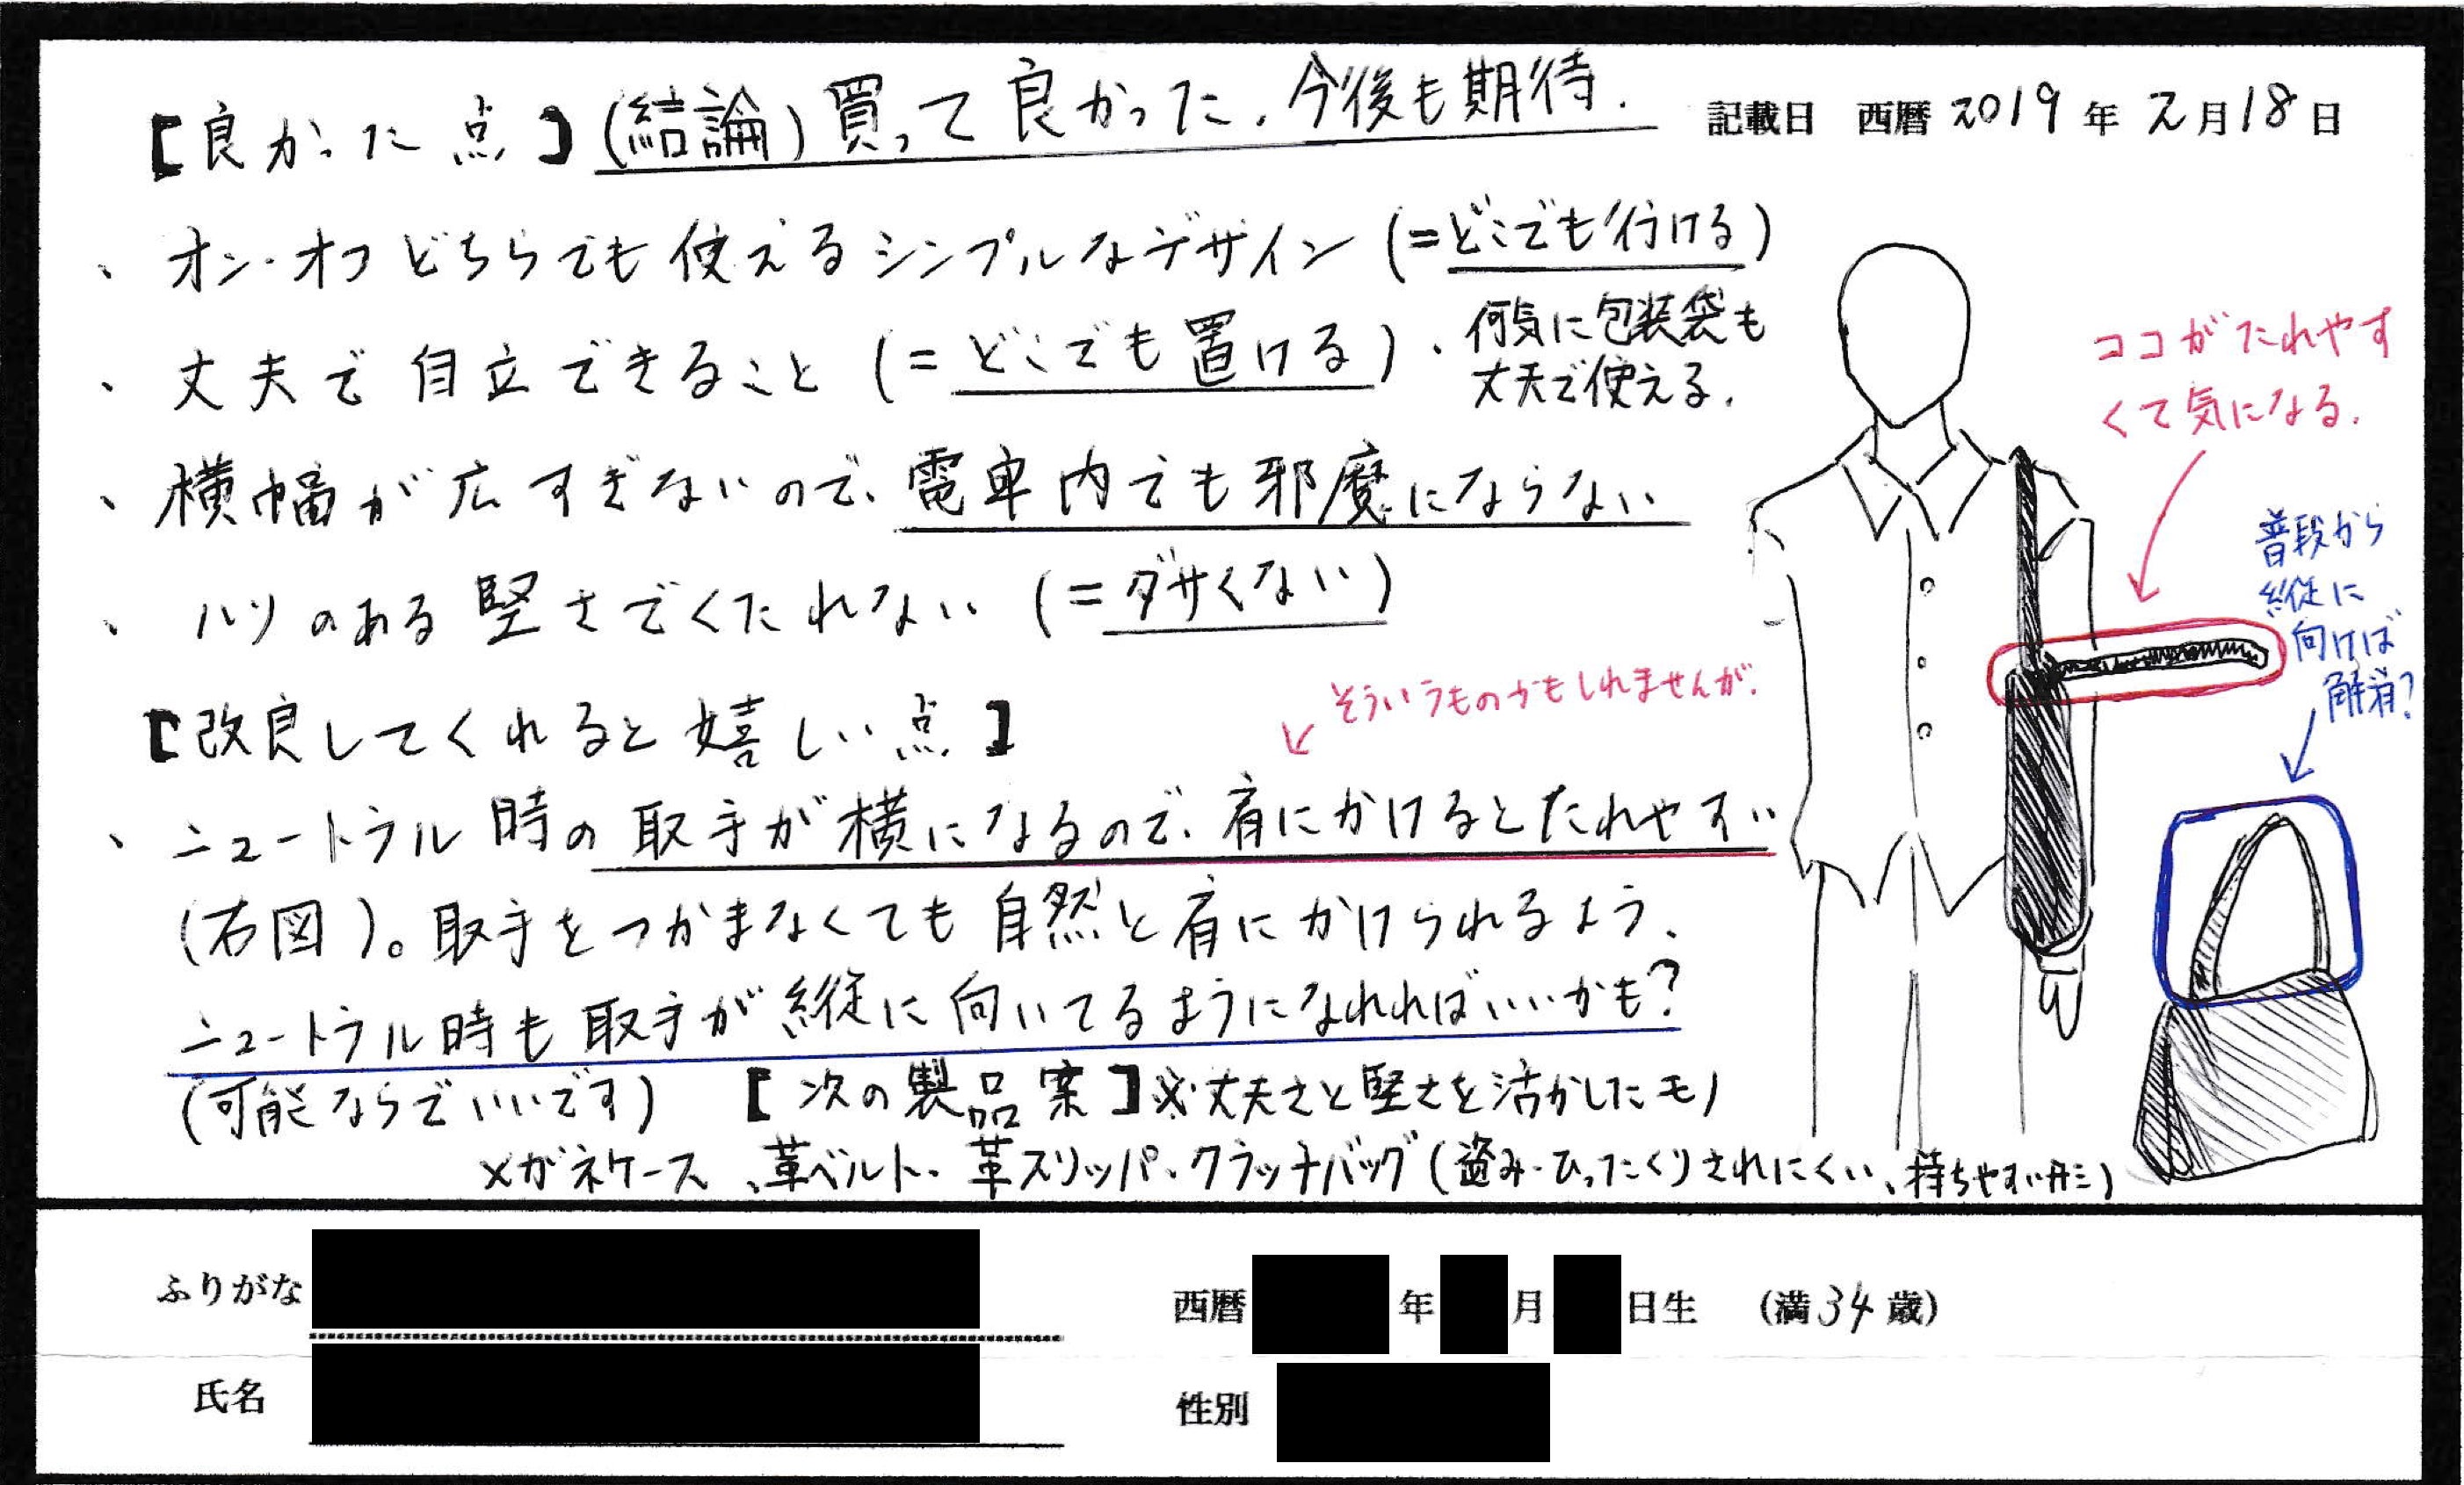 【良かった点】(結論)買って良かった、今後も期待.
記載日 西暦 2019 年 2 月 18 日
、オン・オフどちらでも使えるシンプルなデザイン(=どこでも行ける)
、丈夫で自立できること(=どこでも置ける)、何気に包装袋も
丈夫で使える.
、横幅が広すぎないので、電車内でも邪魔にならない
、ハリのある堅さでくたれない(=ダサくない)
【改良してくれると嬉しい点】
そういうものかもしれませんが.
、ニュートラル時の取手が横になるので、肩にかけるとたれやすい
(右図)。取手をつかまなくても自然と肩にかけられるよう、
ニュートラル時も取手が縦に向いてるようになれればいいかも?
(可能ならでいいです) 【次の製品案】※丈夫さと堅さを活かしたモノ
メガネケース、革ベルト、革スリッパ、クラッチバッグ(盗み・ひったくりされにくい、持ちやすい形)
ココがたれやす
くて気になる.
普段から
縦に
向けば
解消?
ふりがな
西暦 年 月 日生 (満 34 歳)
氏名
性別